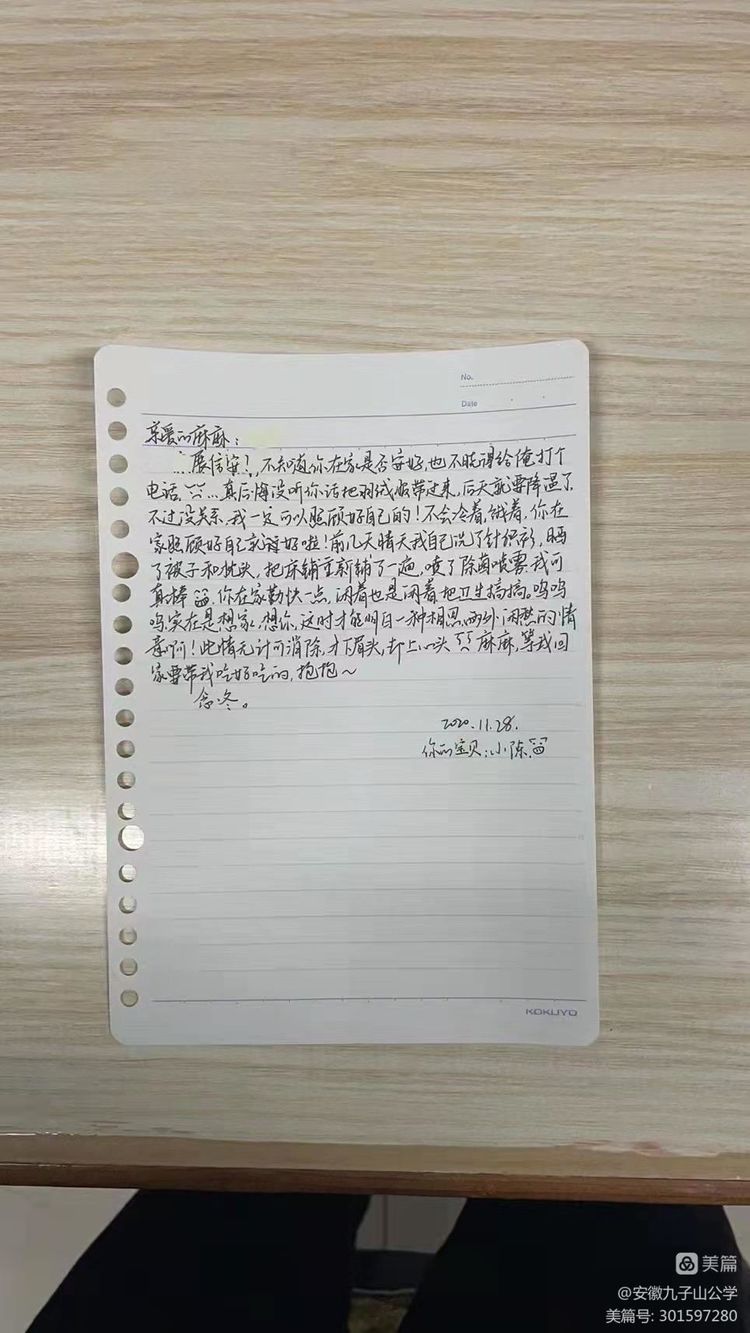 No.
Date
亲爱的麻麻：
展信安！，不知道你在家是否安好，也不晓得给俺打个
电话，…真后悔没听你话把羽绒服带过来，后天就要降温了
不过没关系，我一定可以照顾好自己的！不会冷着，饿着，你在
家照顾好自己就好啦！前几天晴天我自己洗了针织衫，晒
了被子和枕头，把床铺重新铺了一遍，喷了除菌喷雾.我可
真棒 你在家勤快一点，闲着也是闲着把卫生搞搞。呜呜
呜，实在是想家，想你，这时才能明白一种相思，两处闲愁的情
意啊！此情无计可消除，才下眉头，却上心头 麻麻，等我回
家要带我吃好吃的，抱抱～
念冬。
2020.11.28.
你的宝贝：小陈
KOKUYO
美篇
@安徽九子山公学
美篇号: 301597280